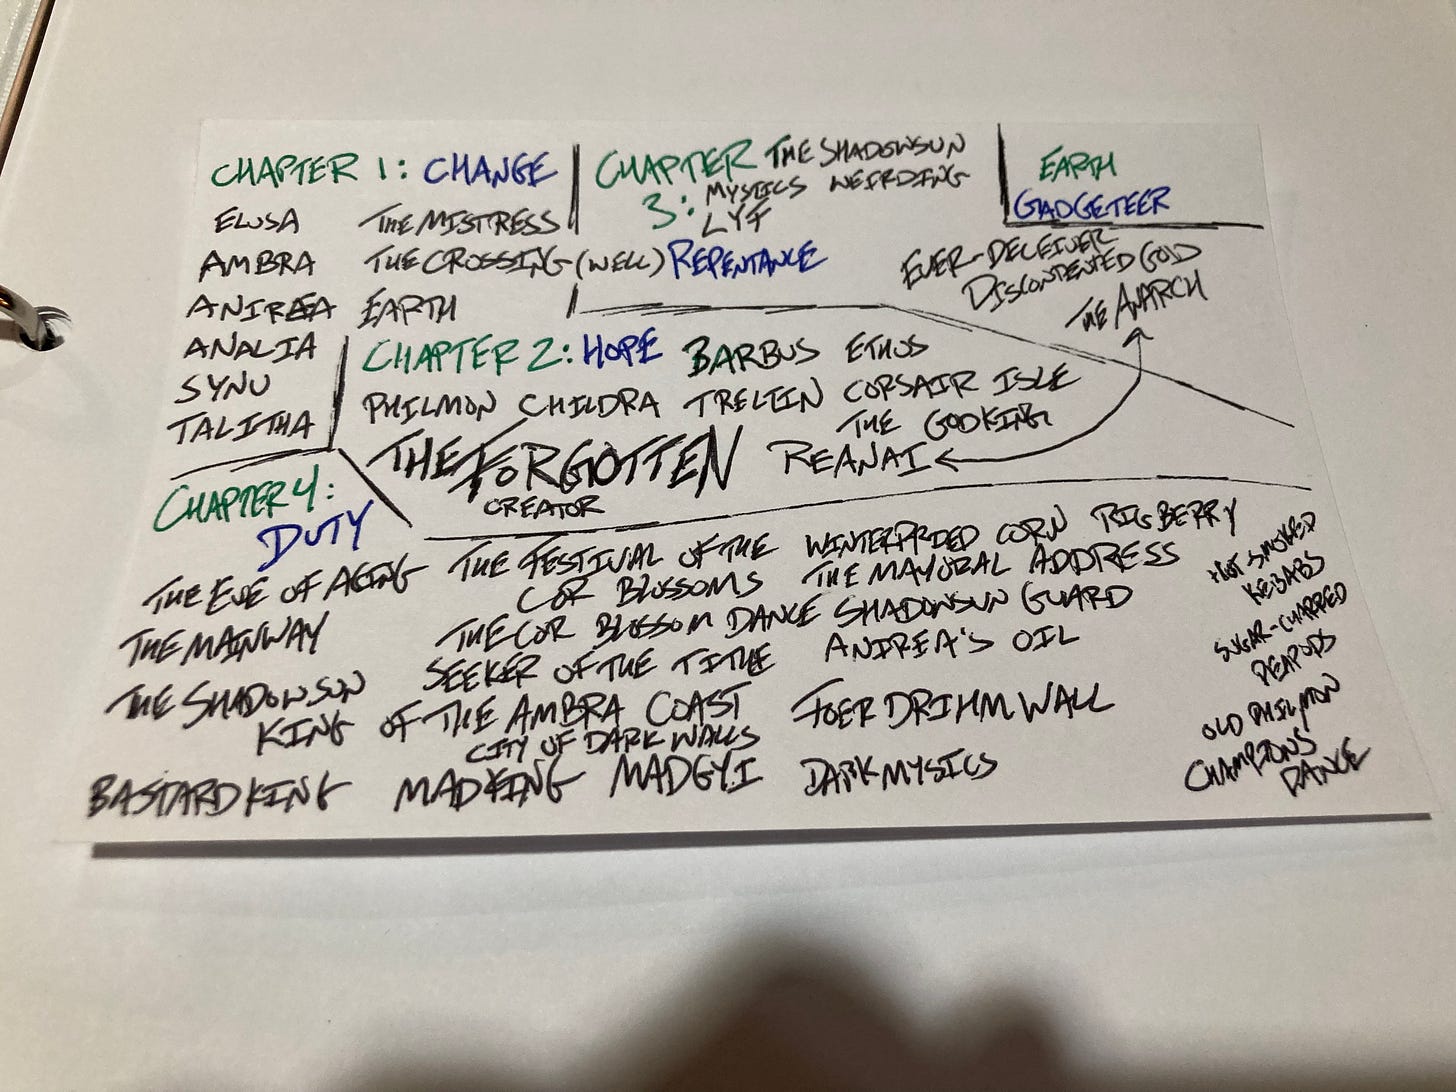 CHAPTER 1: CHANGE
ELUSA THE MISTRESS
AMBRA THE CROSSING (WELL)
ANIREA EARTH
ANALIA
SYNU
TALITHA
CHAPTER 3: THE SHADOWSUN
MYSTICS WEIRDING
LYF
REPENTANCE
EARTH
GADGETEER
EVER-DECEIVER
DISCONTENTED GOD
THE ANARCH
CHAPTER 2: HOPE BARBUS ETHUS
PHILMON CHILDRA TRELTIN CORSAIR ISLE
THE GODKING
THE FORGOTTEN REANAI
CREATOR
CHAPTER 4:
DUTY
THE EVE OF AGING
THE MAINWAY
THE SHADOWSUN
KING OF THE AMBRA COAST
CITY OF DARK WALLS
BASTARD KING MADKING MADGYI DARK MYSICS
THE FESTIVAL OF THE
COR BLOSSOMS
THE COR BLOSSOM DANCE
SEEKER OF THE TITHE
WINTERPRIED CORN RIGBERRY
THE MAYORAL ADDRESS
SHADOWSUN GUARD
ANIREA'S OIL
FOERDRIHM WALL
HOT SMOKED
KEBABS
SUGAR-CHARRED
PEAPODS
OLD PHILMON
CHAMPIONS
DANCE